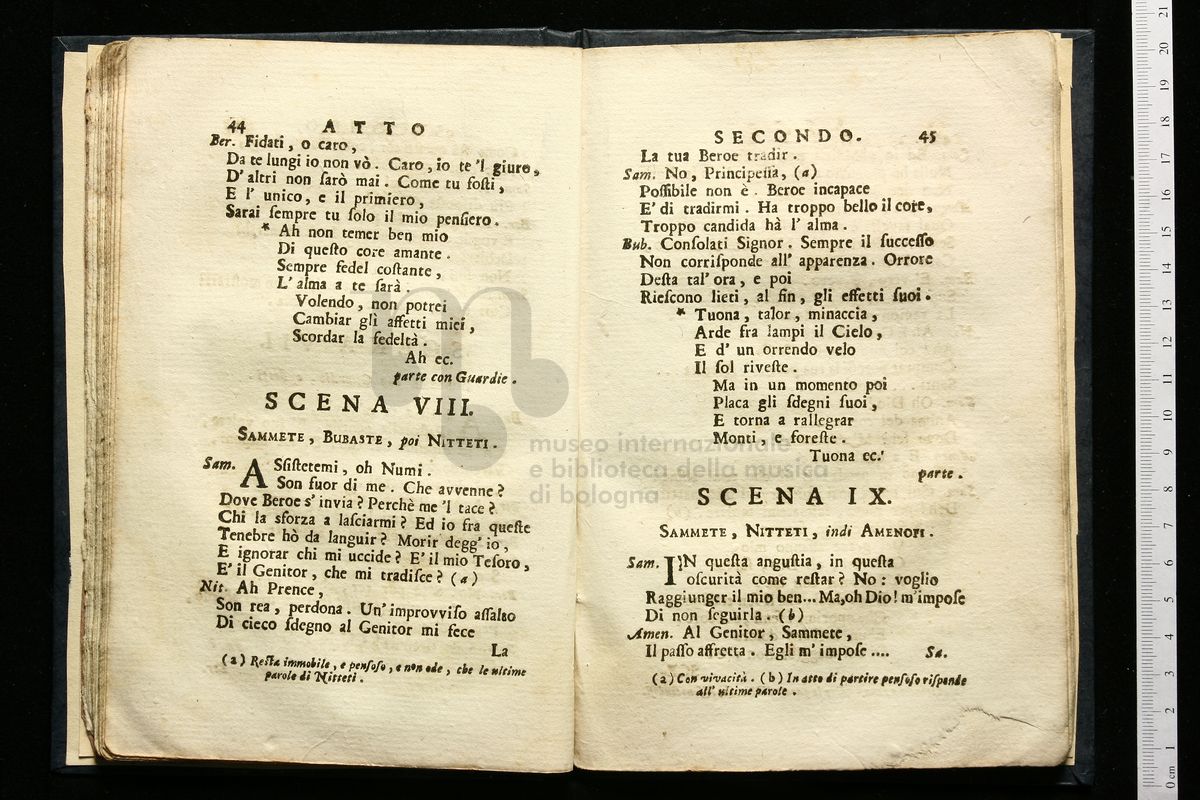 44 ATTO
Ber. Fidati, o caro,
Da te lungi io non vò. Caro, io te 'l giuro,
D'altri non ſarò mai. Come tu foſti,
E l' unico, e il primiero,
Sarai ſempre tu ſolo il mio penſiero.
* Ah non temer ben mio
Di queſto core amante.
Sempre fedel coſtante,
L'alma a te ſarà.
Volendo, non potrei
Cambiar gli affetti miei,
Scordar la fedeltà.
Ah ec.
parte con Guardie.
SCENA VIII.
SAMMETE, BUBASTE, poi NITTETI.
Sam. ASſiſtetemi, oh Numi.
Son fuor di me. Che avvenne?
Dove Beroe s'invia? Perchè me 'l tace?
Chi la sforza a laſciarmi? Ed io fra queſte
Tenebre hò da languir? Morir degg'io,
E ignorar chi mi uccide? E' il mio Teſoro,
E' il Genitor, che mi tradiſce? (a)
Nit. Ah Prence,
Son rea, perdona. Un'improvviſo aſſalto
Di cieco ſdegno al Genitor mi fece
La
(a) Reſta immobile, e penſoſo, e non ode, che le ultime
parole di Nitteti.
SECONDO. 45
La tua Beroe tradir.
Sam. No, Principeſſa, (a)
Poſſibile non è. Beroe incapace
E' di tradirmi. Ha troppo bello il core,
Troppo candida hà l' alma.
Bub. Conſolati Signor. Sempre il ſucceſſo
Non corriſponde all' apparenza. Orrore
Deſta tal' ora, e poi
Rieſcono lieti, al fin, gli effetti ſuoi.
* Tuona, talor, minaccia,
Arde fra lampi il Cielo,
E d' un orrendo velo
Il ſol riveſte.
Ma in un momento poi
Placa gli ſdegni ſuoi,
E torna a rallegrar
Monti, e foreſte.
Tuona ec.
parte.
SCENA IX.
SAMMETE, NITTETI, indi AMENOFI.
Sam. IN queſta anguſtia, in queſta
oſcurità come reſtar? No: voglio
Raggiunger il mio ben... Ma, oh Dio! m'impoſe
Di non ſeguirla. (b)
Amen. Al Genitor, Sammete,
Il paſſo affretta. Egli m' impoſe .... Sa.
(a) Con vivacità. (b) In atto di partire penſoſo riſponde
all' ultime parole.
museo internazionale
e biblioteca della musica
di bologna
0 cm 1 2 3 4 5 6 7 8 9 10 11 12 13 14 15 16 17 18 19 20 21